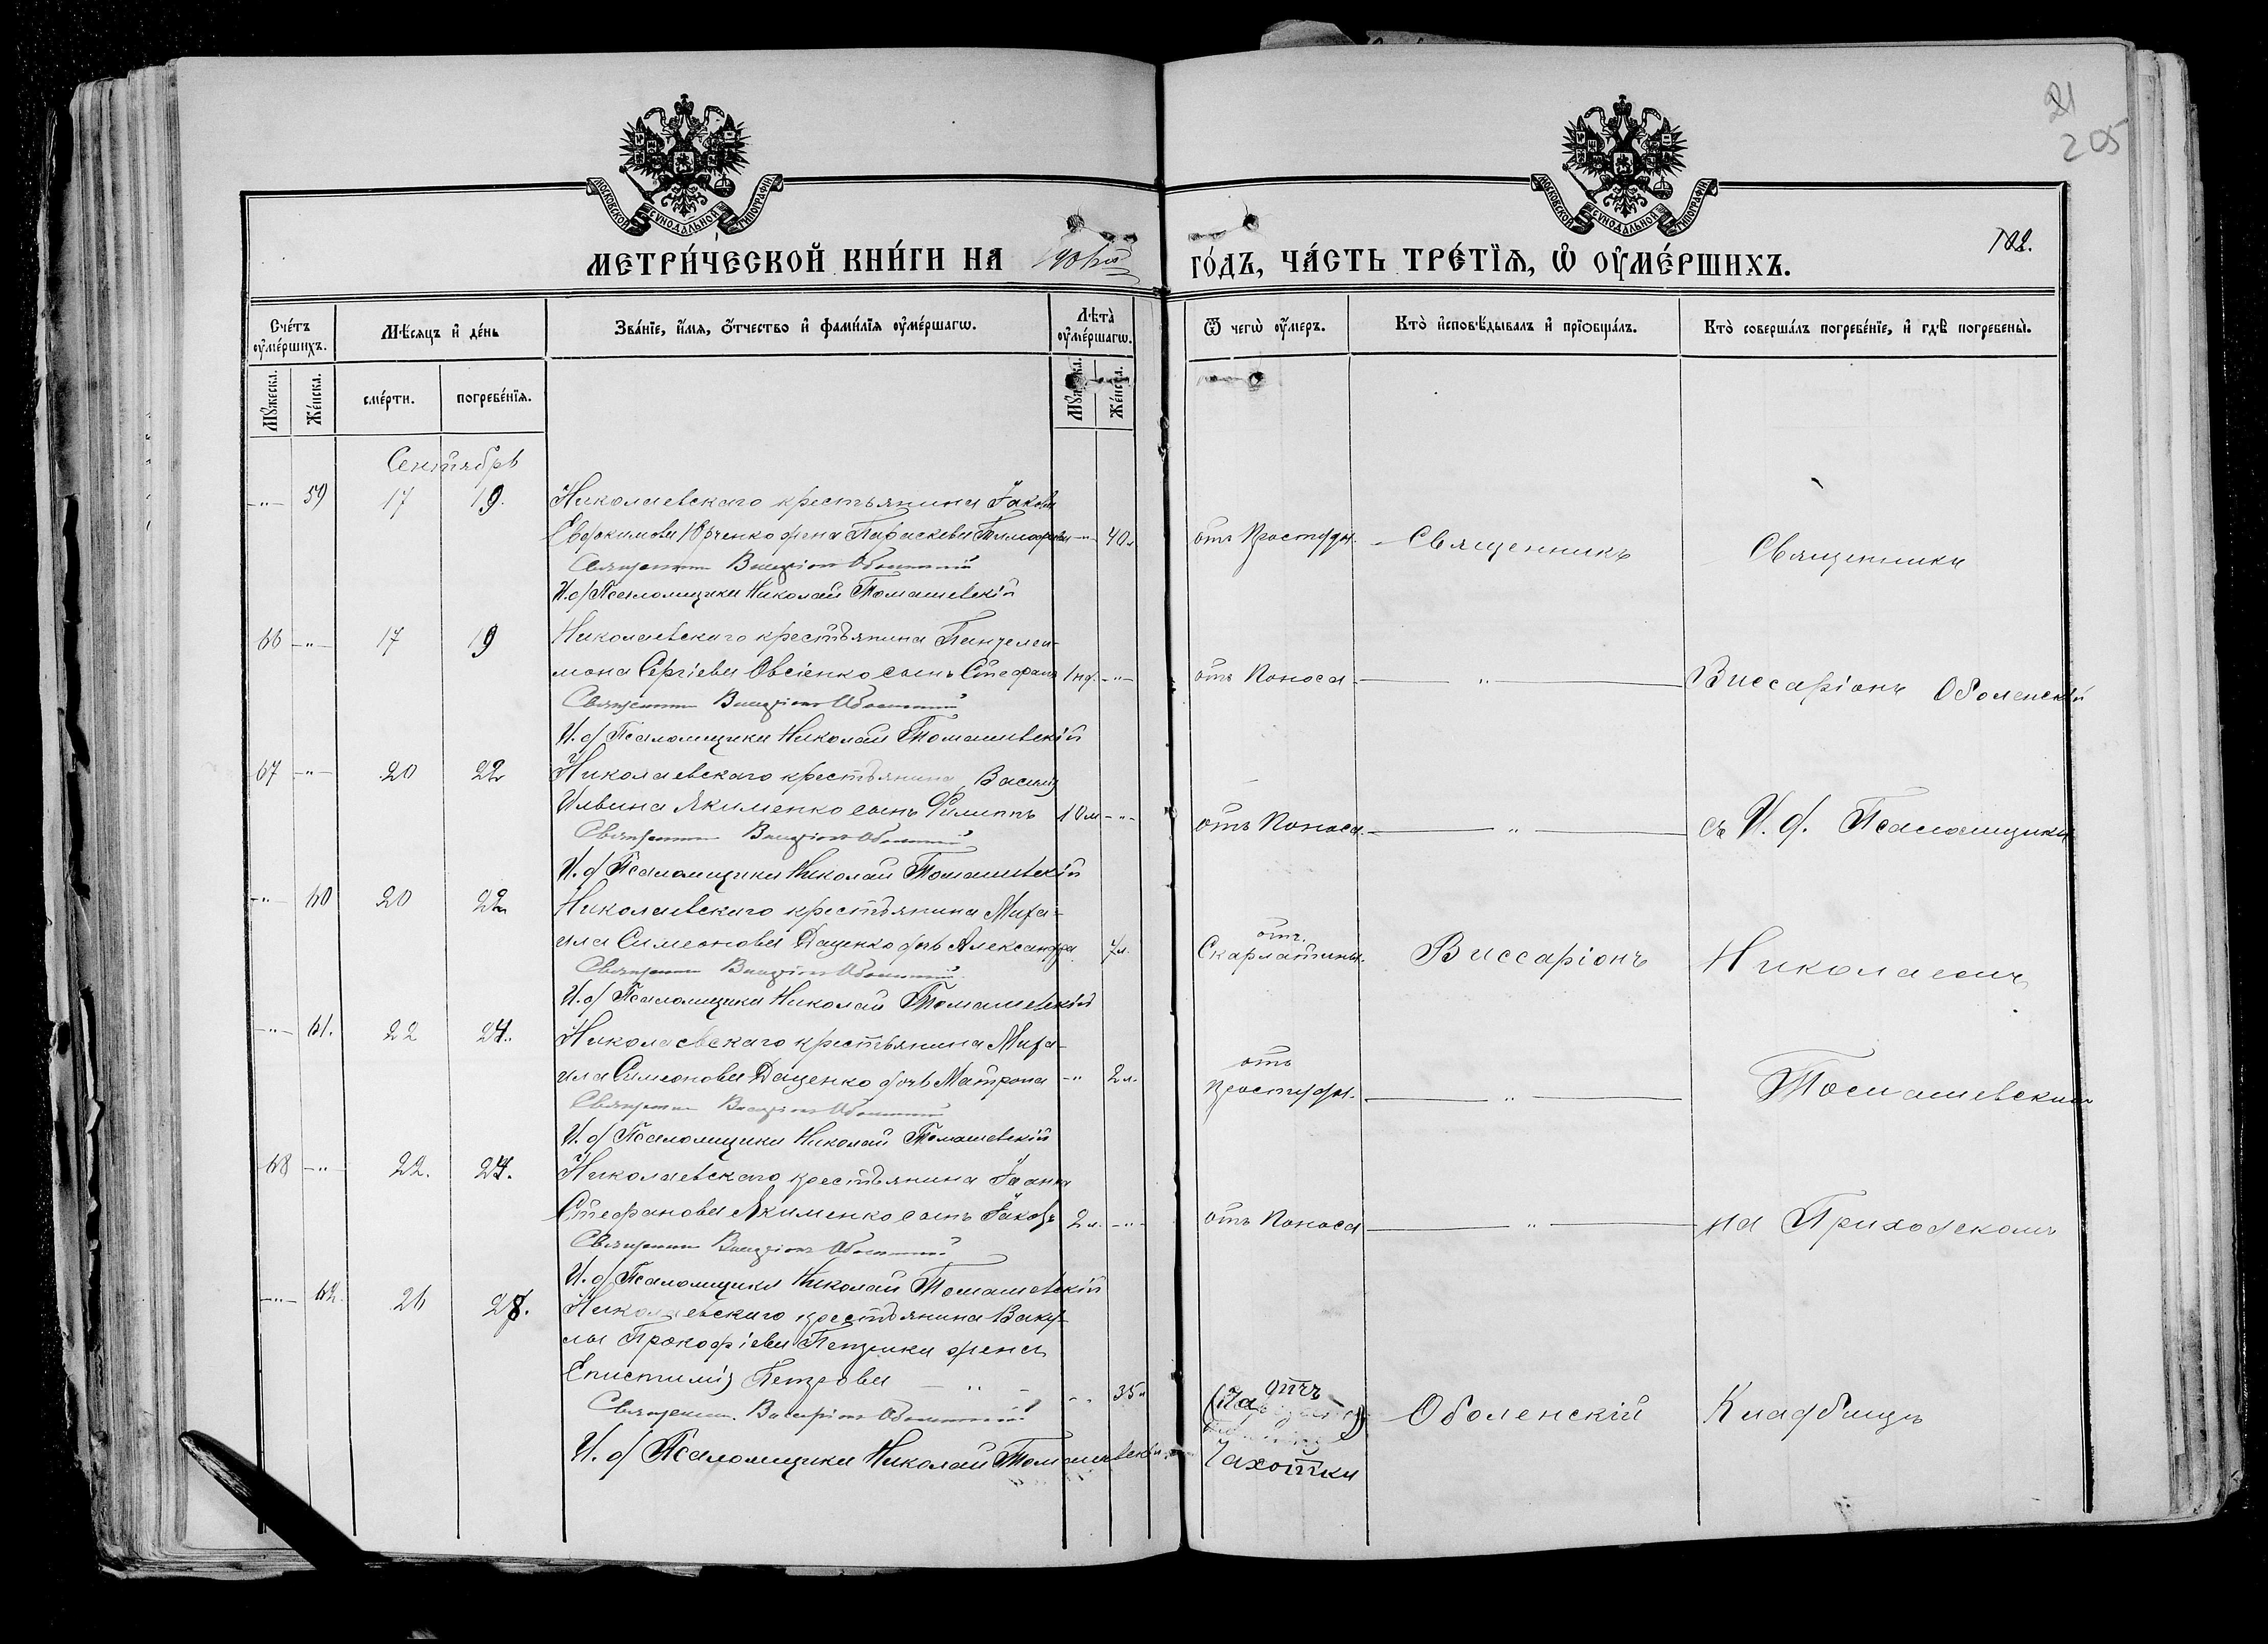 21
205
МОСКОВСКОЙ СѴНОДАЛЬНОЙ ТИПОГРАФІИ
МОСКОВСКОЙ СѴНОДАЛЬНОЙ ТИПОГРАФІИ
МЕТРИ́ЧЕСКОЙ КНИ́ГИ НА
ГО́ДЪ, ЧА́СТЬ ТРЕ́ТЇѦ, Ѡ҆ ОУ҆МЕ́РШИХЪ.
Сче́тъ оу҆ме́ршихъ.
Мѣ́сяцъ и҆ де́нь
Зва́нїе, и҆́мѧ, ѻ҆́тчество и҆ фами́лїѧ оу҆ме́ршагѡ.
Лѣта̀ оу҆ме́ршагѡ.
Ѿ чегѡ̀ оу҆́меръ.
Кто̀ и҆сповѣ́дывалъ и҆ прїѻбща́лъ.
Кто̀ соверша́лъ погребе́нїе, и҆ гдѣ̀ погребены̀.
Мꙋ́жеска.
Же́нска.
сме́рти.
погребе́нїѧ.
Мꙋ́жеска.
Же́нска.
Сентябрь
-"- 59 17 19. Николаевскаго крестьянина Іакова
Евдокимова Юрченко жена Параскева Тимофеева -"- 40 л отъ Простуды. Священникъ Священникъ
Священникъ Виссаріонъ Оболенскій
И. д. Псаломщика Николай Томашевскій
66 -"- 17 19 Николаевскаго крестьянина Пантелеи-
мона Сергіева Овсіенко сынъ Стефанъ 1 нд. -"- отъ Поноса " Виссаріонъ Оболенскій
Священникъ Виссаріонъ Оболенскій
И. д. Псаломщика Николай Томашевскій
67 -"- 20 22 Николаевскаго крестьянина Василія
Ильина Якименко сынъ Филиппъ 10 м -"- отъ Поноса. " съ И. д. Псаломщика
Священникъ Виссаріонъ Оболенскій
И. д. Псаломщика Николай Томашевскій
-"- 60 20 22 Николаевскаго крестьянина Миха-
ила Симеонова Даценко дочь Александра 7 л. отъ Скарлатины. Виссаріонъ Николаемъ
Священникъ Виссаріонъ Оболенскій
И. д. Псаломщика Николай Томашевскій
-"- 61. 22 24. Николаевскаго крестьянина Миха-
ила Симеонова Даценко дочь Матрона -"- 2 л. отъ Простуды. " Томашевскимъ
Священникъ Виссаріонъ Оболенскій
И. д. Псаломщика Николай Томашевскій
68 -"- 22. 24. Николаевскаго крестьянина Іоанна
Стефанова Якименко сынъ Іаковъ 2 л. -"- отъ Поноса " на Приходскомъ
Священникъ Виссаріонъ Оболенскій
И. д. Псаломщика Николай Томашевскій
-"- 62. 26 28. Николаевскаго крестьянина Ваку-
лы Прокофіева жена
Епистимія Петрова " 35 л отъ Чахотки Оболенскій Кладбищѣ
Священник. Виссаріонъ Оболенскій
И. д. Псаломщика Николай Томашевскій